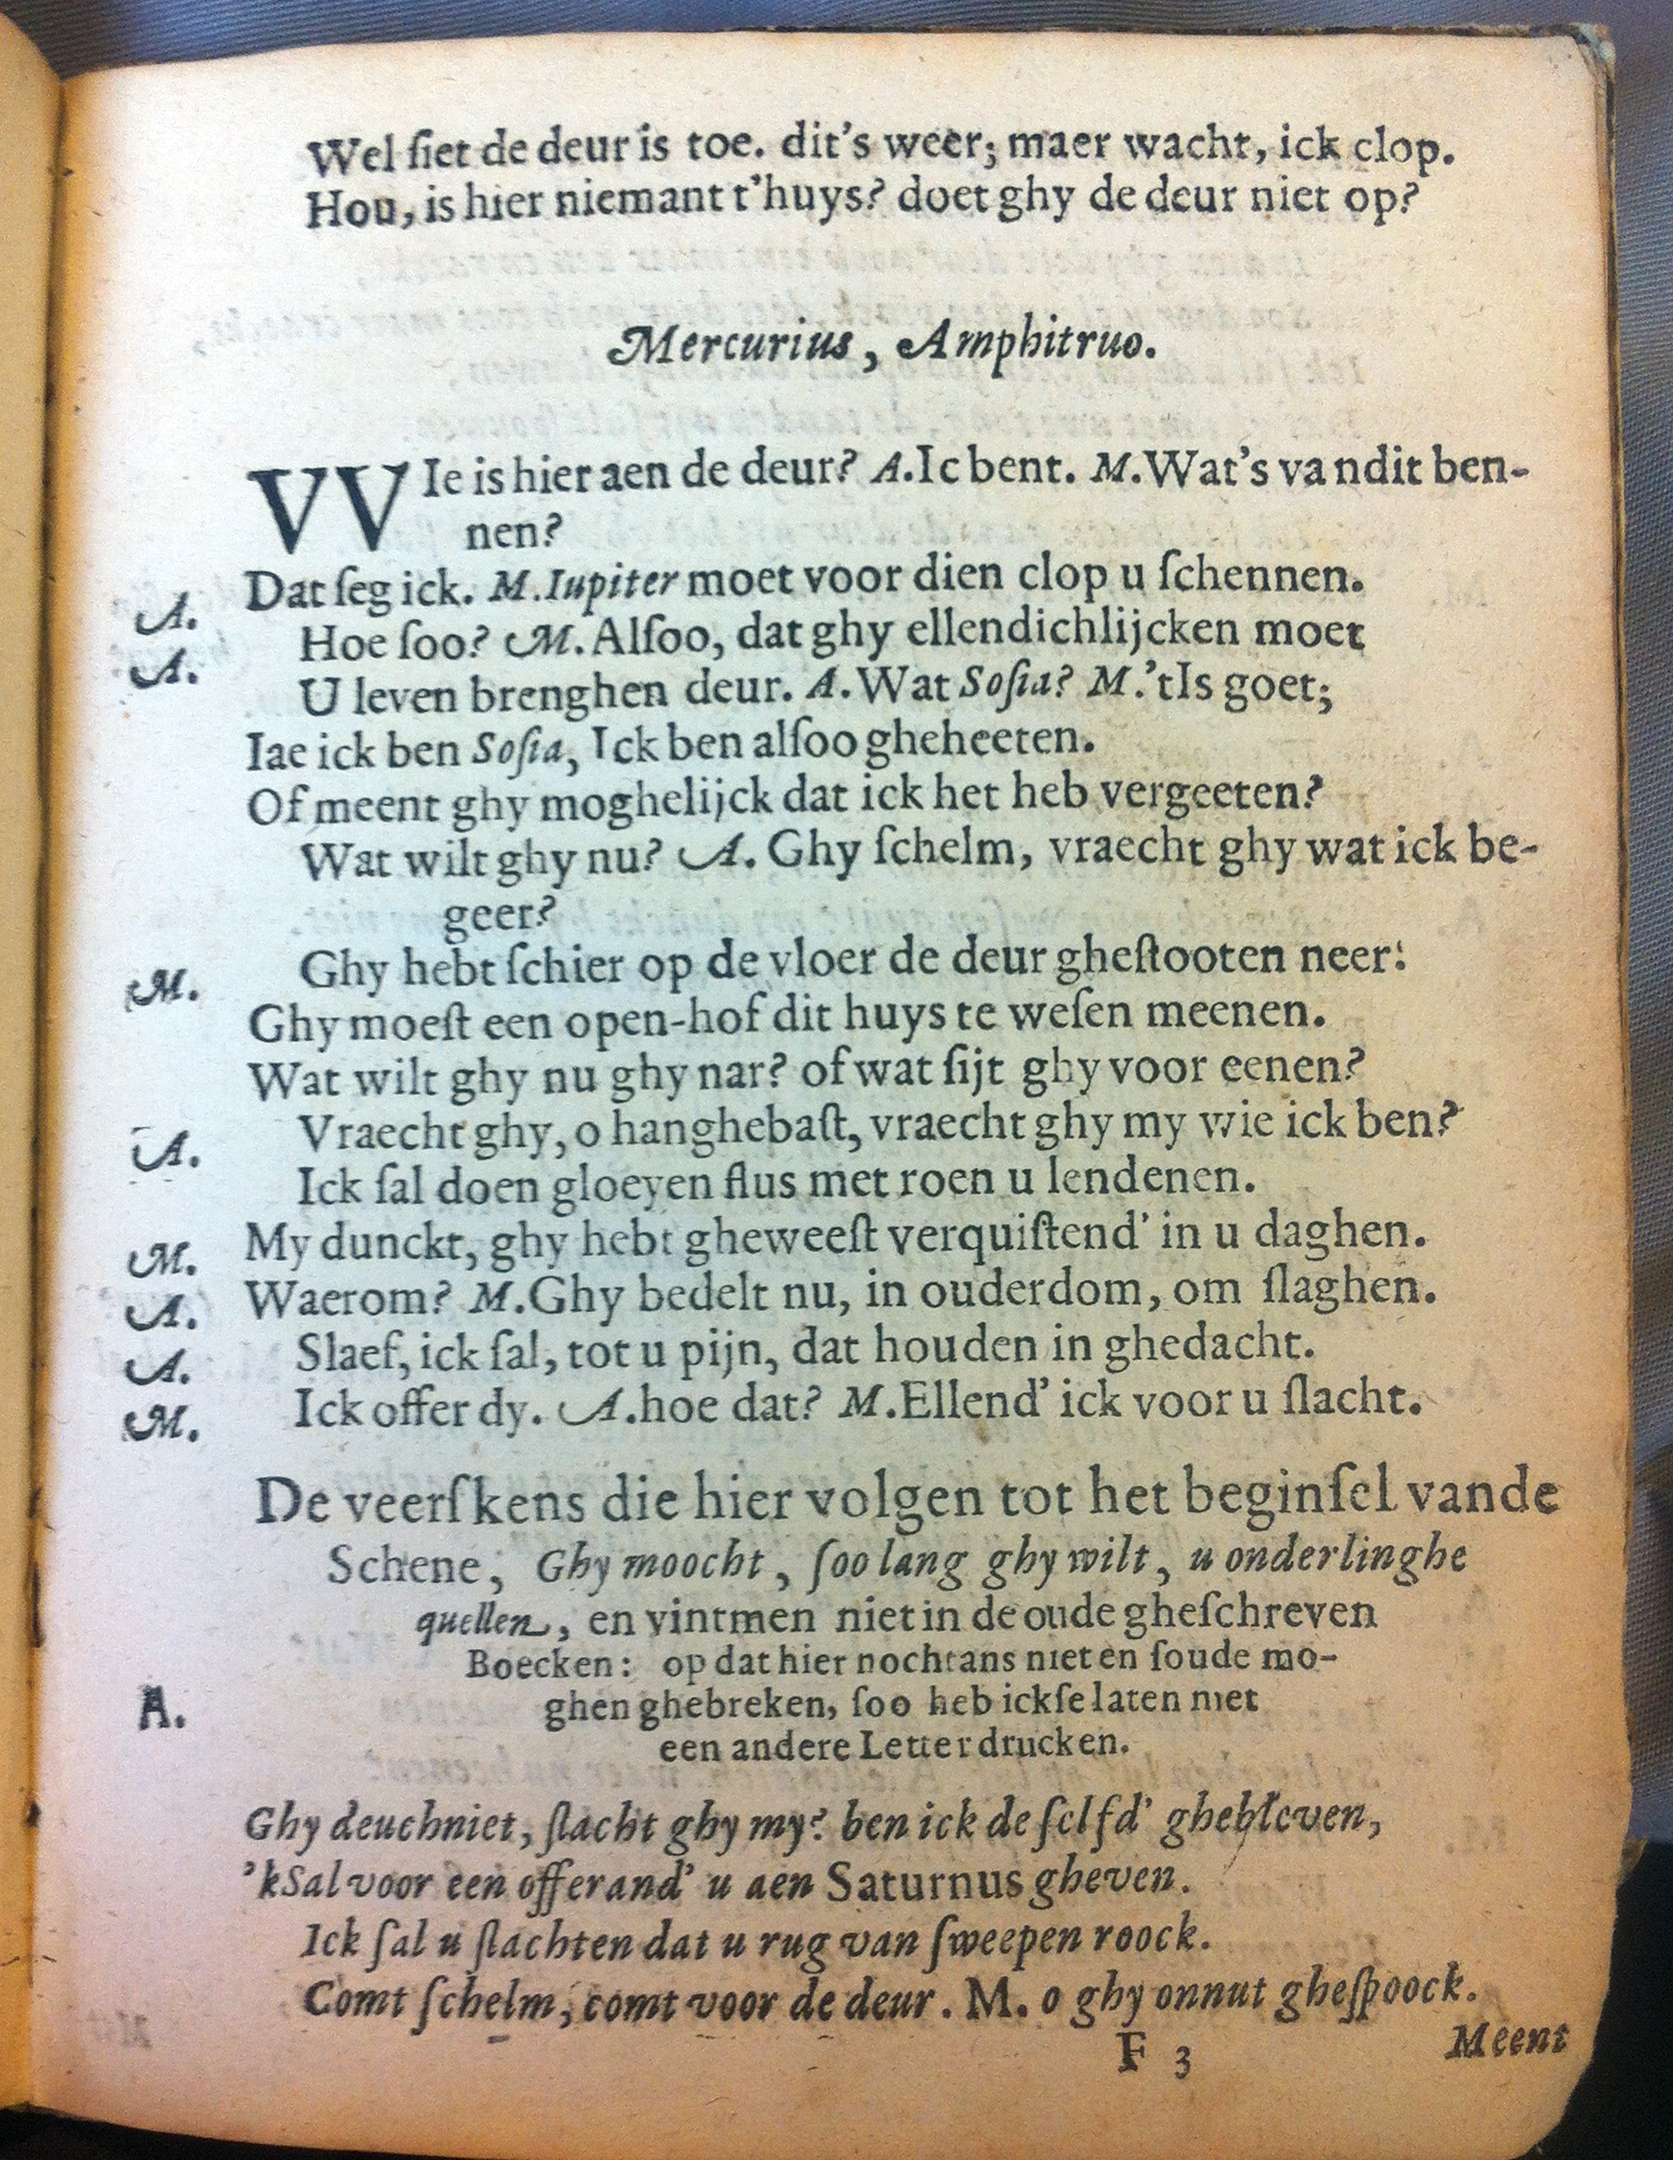 Wel ſiet de deur is toe. dit's weer; maer wacht, ick clop.
Hou, is hier niemant t'huys? doet ghy de deur niet op?
Mercurius, Amphitruo.
VVIe is hier aen de deur? A. Ic bent. M. Wat's van dit ben-
nen?
A. Dat ſeg ick. M. Iupiter moet voor dien clop u ſchennen.
A. Hoe ſoo? M. Alſoo, dat ghy ellendichlijcken moet
U leven brenghen deur. A. Wat Soſia? M. 'tIs goet;
Iae ick ben Soſia, Ick ben alſoo gheheeten.
Of meent ghy moghelijck dat ick het heb vergeeten?
Wat wilt ghy nu? A. Ghy ſchelm, vraecht ghy wat ick be-
geer?
M. Ghy hebt ſchier op de vloer de deur gheſtooten neer:
Ghy moeſt een open-hof dit huys te weſen meenen.
Wat wilt ghy nu ghy nar? of wat ſijt ghy voor eenen?
A. Vraecht ghy, o hanghebaſt, vraecht ghy my wie ick ben?
Ick ſal doen gloeyen flus met roen u lendenen.
M. My dunckt, ghy hebt gheweeſt verquiſtend' in u daghen.
A. Waerom? M. Ghy bedelt nu, in ouderdom, om ſlaghen.
A. Slaef, ick ſal, tot u pijn, dat houden in ghedacht.
M. Ick offer dy. A. hoe dat? M. Ellend' ick voor u ſlacht.
De veerſkens die hier volgen tot het beginſel vande
Schene, Ghy moocht, ſoo lang ghy wilt, u onderlinghe
quellen, en vintmen niet in de oude gheſchreven
Boecken: op dat hier nochtans niet en ſoude mo-
ghen ghebreken, ſoo heb ickſe laten met
een andere Letter drucken.
A. Ghy deuchniet, ſlacht ghy my? ben ick de ſelfd' ghebleven,
'kSal voor een offerand' u aen Saturnus gheven.
Ick ſal u ſlachten dat u rug van ſweepen roock.
Comt ſchelm, comt voor de deur. M. o ghy onnut gheſpoock.
F 3
Meent